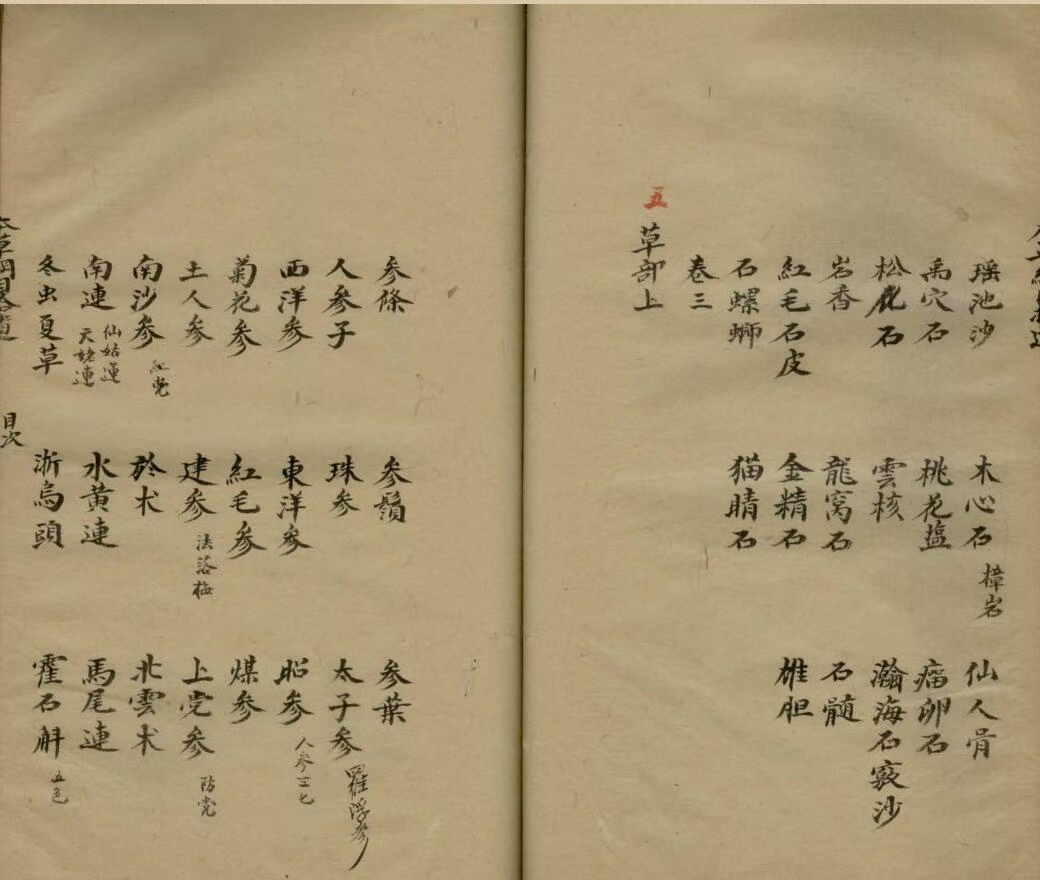 瑶池沙 木心石 樟岩 仙人骨
禹穴石 桃花盐 瘤卵石
松花石 雲核 瀚海石竅沙
岩香 龍窩石 石髄
紅毛石皮 金精石 雄胆
石螺螄 猫睛石
卷三
五 草部上
参條 参鬚 参葉
人参子 珠参 太子参 羅浮参
西洋参 東洋参 昭参 人参三七
菊花参 紅毛参 煤参
土人参 建参 法落梅 上党参 防党
南沙参 紅党 於术 北雲术
南連 仙姑蓮 天姥連 水黄連 馬尾連
冬虫夏草 浙烏頭 霍石斛 五色
本草綱目拾遺 目次